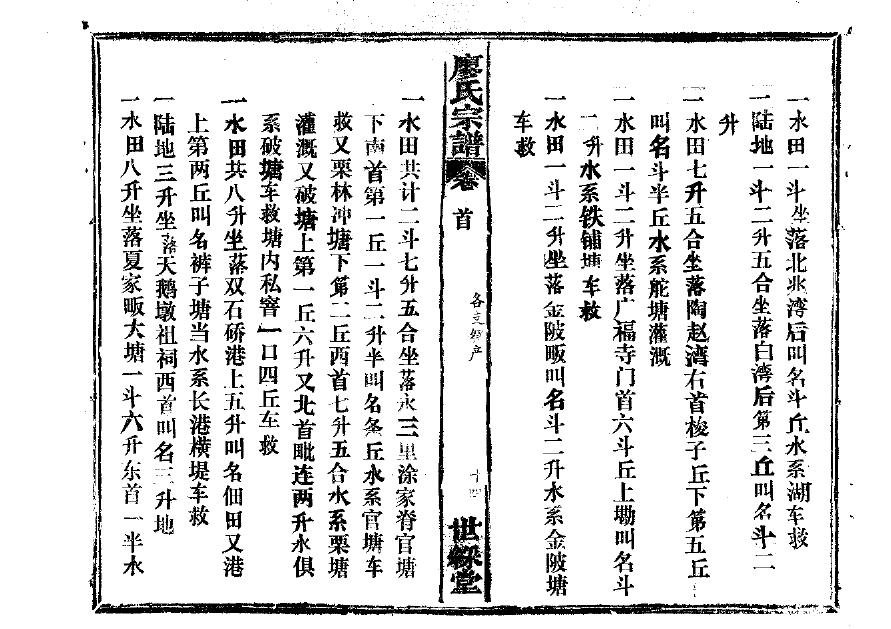 一水田一斗坐落北兆湾后叫名斗丘水系湖车救
一陆地一斗二升五合坐落白湾后第三丘叫名斗二
升
一水田七升五合坐落陶赵湾右首梭子丘下第五丘
叫名斗半丘水系舵塘灌溉
一水田一斗二升坐落广福寺门首六斗丘上墈叫名斗
二升水系铁铺塘车救
一水田一斗二升坐落金陂畈叫名斗二升水系金陂塘
车救
廖氏宗譜 卷首 各支 产 十四 世綵堂
一水田共计二斗七升五合坐落永三里涂家脊官塘
下南首第一丘一斗二升半叫名条丘水系官塘车
救又栗林冲塘下第二丘西首七升五合水系栗塘
灌溉又破塘上第一丘六升又北首毗连两升水俱
系破塘车救塘内私窨一口四丘车救
一水田共八升坐落双石硚港上五升叫名佃田又港
上第两丘叫名裤子塘当水系长港横堤车救
一陆地三升坐落天鹅墩祖祠西首叫名三升地
一水田八升坐落夏家畈大塘一斗六升东首一半水